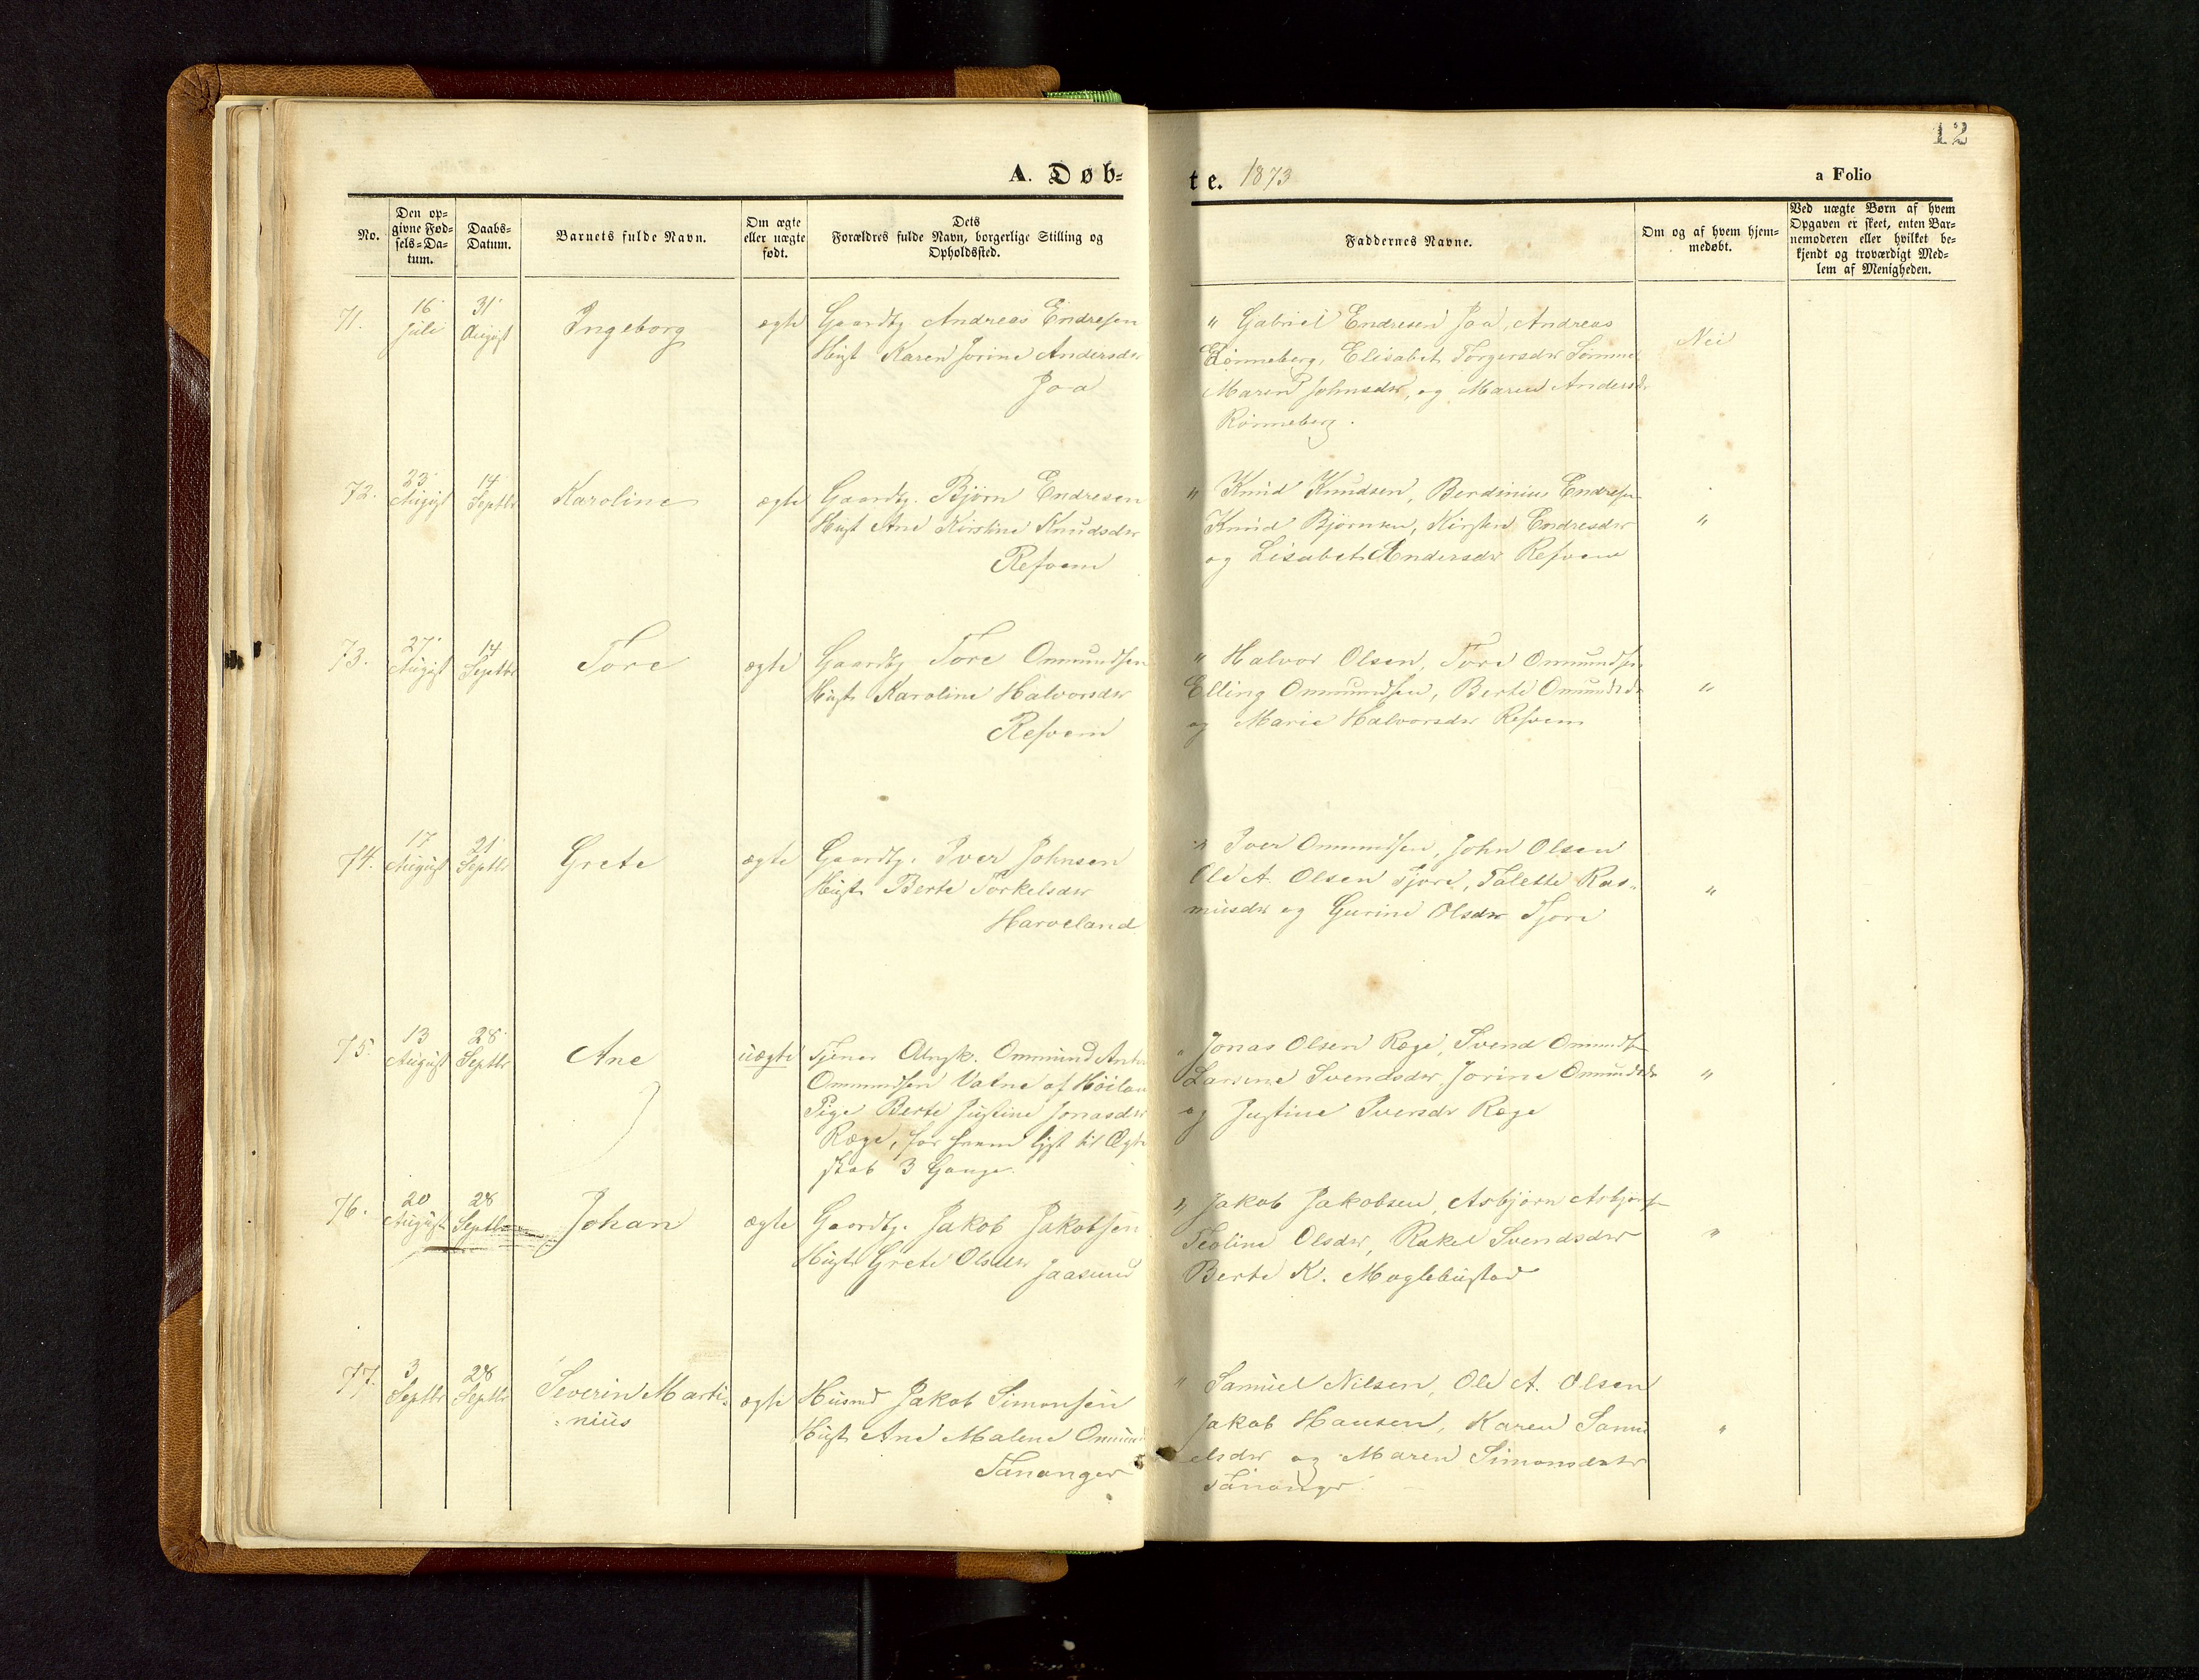 12
A. Døb=
te. 1873
a Folio
No.
Den op=
givne Fød=
sels=Da=
tum.
Daabs=
Datum.
Barnets fulde Navn.
Om ægte
eller uægte
født.
Dets
Forældres fulde Navn, borgerlige Stilling og
Opholdssted.
Faddernes Navne.
Om og af hvem hjem=
medøbt.
Ved uægte Børn af hvem
Opgaven er skeet, enten Bar=
nemoderen eller hvilket be=
kjendt og troværdigt Med=
lem af Menigheden.
71.
16
Juli
31
August
Ingeborg
ægte
Gaardbr. Andreas Endresen
Hust Karen Jorine Andersdr
Joa
" Gabriel Endresen Joa, Andreas
Rønneberg, Elisabet Torgersdr Sømme
Maren Johnsdr, og Maren Andersdr
Rønneberg.
Nei
72.
23
August
14
Septbr
Karoline
ægte
Gaardbr. Bjørn Endresen
Hust Ane Kirstine Knudsdr
Refvem
" Knud Knudsen, Berdinius Endresen
Knud Bjørnsen, Kirsten Endresdr
og Lisabet Andersdr Refvem
"
73.
27
August
14
Septbr
Tore
ægte
Gaardbr Tore Ommundsen
Hust Karoline Halvorsdr
Refvem
" Halvor Olsen, Tore Ommundsen
Elling Ommundsen, Berte Omundsdr
og Marie Halvorsdr Refvem
"
74.
17
August
21
Septbr
Grete
ægte
Gaardbr. Iver Johnsen
Hust Berte Torkelsdr
Harveland
" Iver Ommundsen, John Olsen
Ole A. Olsen Tjore, Talette Ras=
musdr og Gurine Olsdr Tjore
"
75.
13
August
28
Septbr
Ane
uægte
Tjener Ommund
Ommundsen Vatne af Høiland
Pige Berte Justine Jonasdr
Ræge, for lyst til Ægte
skab 3 Gange.
" Jonas Olsen Ræge, Svend Omundsen
Svendsdr, Jorine Omundsdr
og Justine Iversdr Ræge
"
76.
20
August
28
Septbr
Johan
ægte
Gaardbr. Jakob Jakobsen
Hust Grete Olsdr Jaasund
" Jakob Jakobsen, Asbjørn Asbjørnsen
Teoline Olsdr, Rakel Svendsdr
Berte K. Myglebustad
"
77.
3
Septbr
28
Septbr
Severin Marti=
=nius
ægte
Husmd Jakob Simonsen
Hust Ane Malene
Tananger
" Samuel Nilsen, Ole A. Olsen
Jakob Hansen, Karen Samu
elsdr og Maren Simonsdatr
Tananger.
"